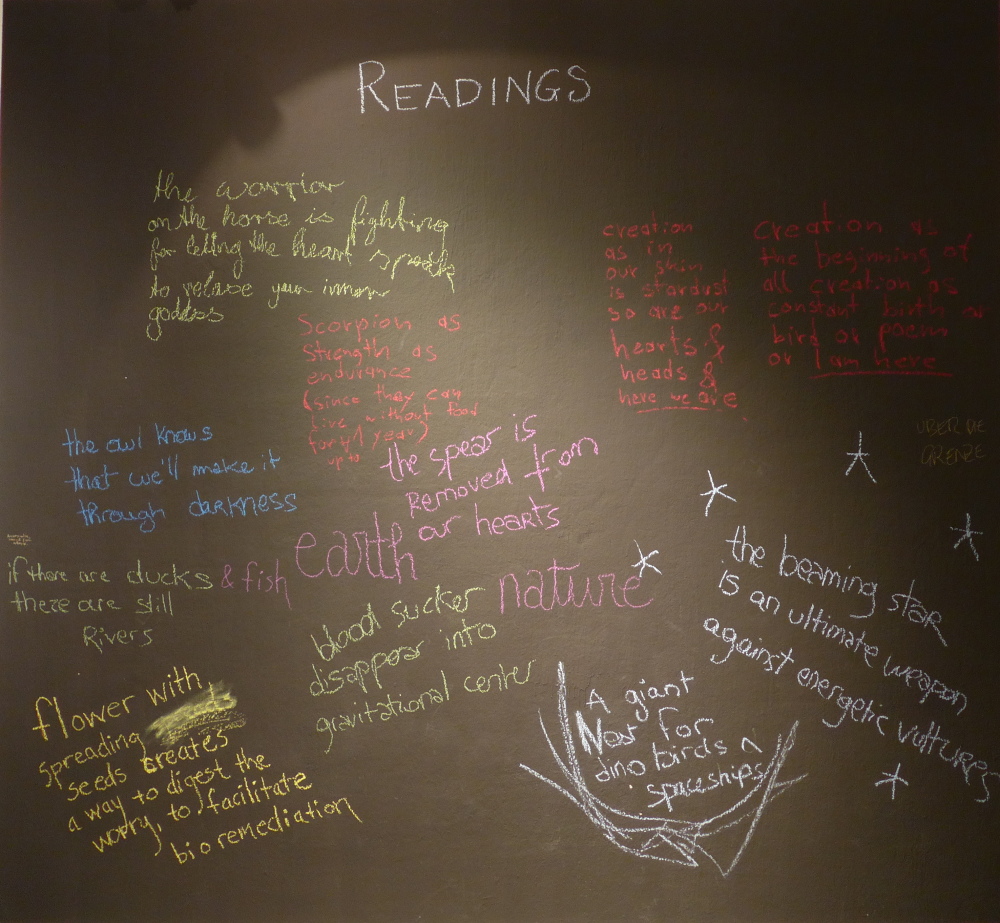 READINGS
the warrior
on the horse is fighting
for letting the heart speak
to relase your inner
goddess
creation
as in
our skin
is stardust
so are our
hearts &
heads &
here we are
creation as
the beginning of
all creation as
constant birth or
bird or poem
or I am here
Scorpion as
strength as
endurance
(since they can
live without food
for 1 year)
up to
the owl knows
that we'll make it
through darkness
the spear is
removed from
our hearts
ÜBER DIE
GRENZE
earth
nature
if there are ducks & fish
there are still
Rivers
blood sucker
disappear into
gravitational center
the beaming star
is an ultimate weapon
against energetic vultures
flower with
spreading
seeds creates
a way to digest the
worry, to facilitate
bioremediation
A giant
Nest for
dino birds n
spaceships